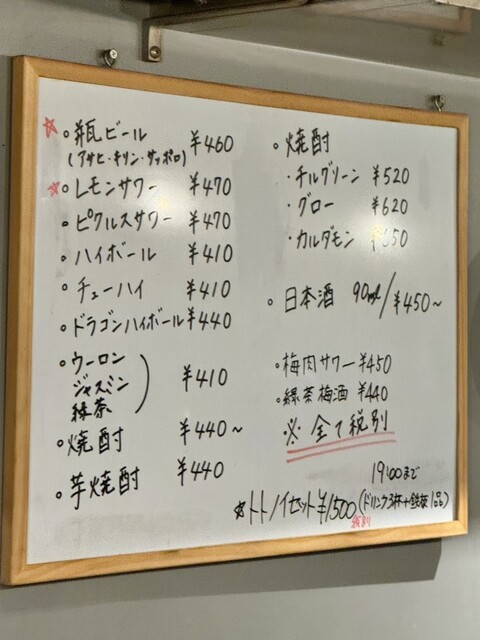 ☆
◦瓶ビール ¥460
(アサヒ・キリン・サッポロ)
☆
◦レモンサワー ¥470
◦ピクルスサワー ¥470
◦ハイボール ¥410
◦チューハイ ¥410
◦ドラゴンハイボール ¥440
◦ウーロン
ジャスミン
緑茶 ) ¥410
◦焼酎 ¥440~
◦芋焼酎 ¥440
◦焼酎
・チルグリーン ¥520
・グロー ¥620
・カルダモン ¥650
◦日本酒 90ml/¥450~
◦梅肉サワー ¥450
◦緑茶梅酒 ¥440
※全て税別
19:00まで
☆トトノイセット ¥1500 (ドリンク3杯+鉄板1品)
税別